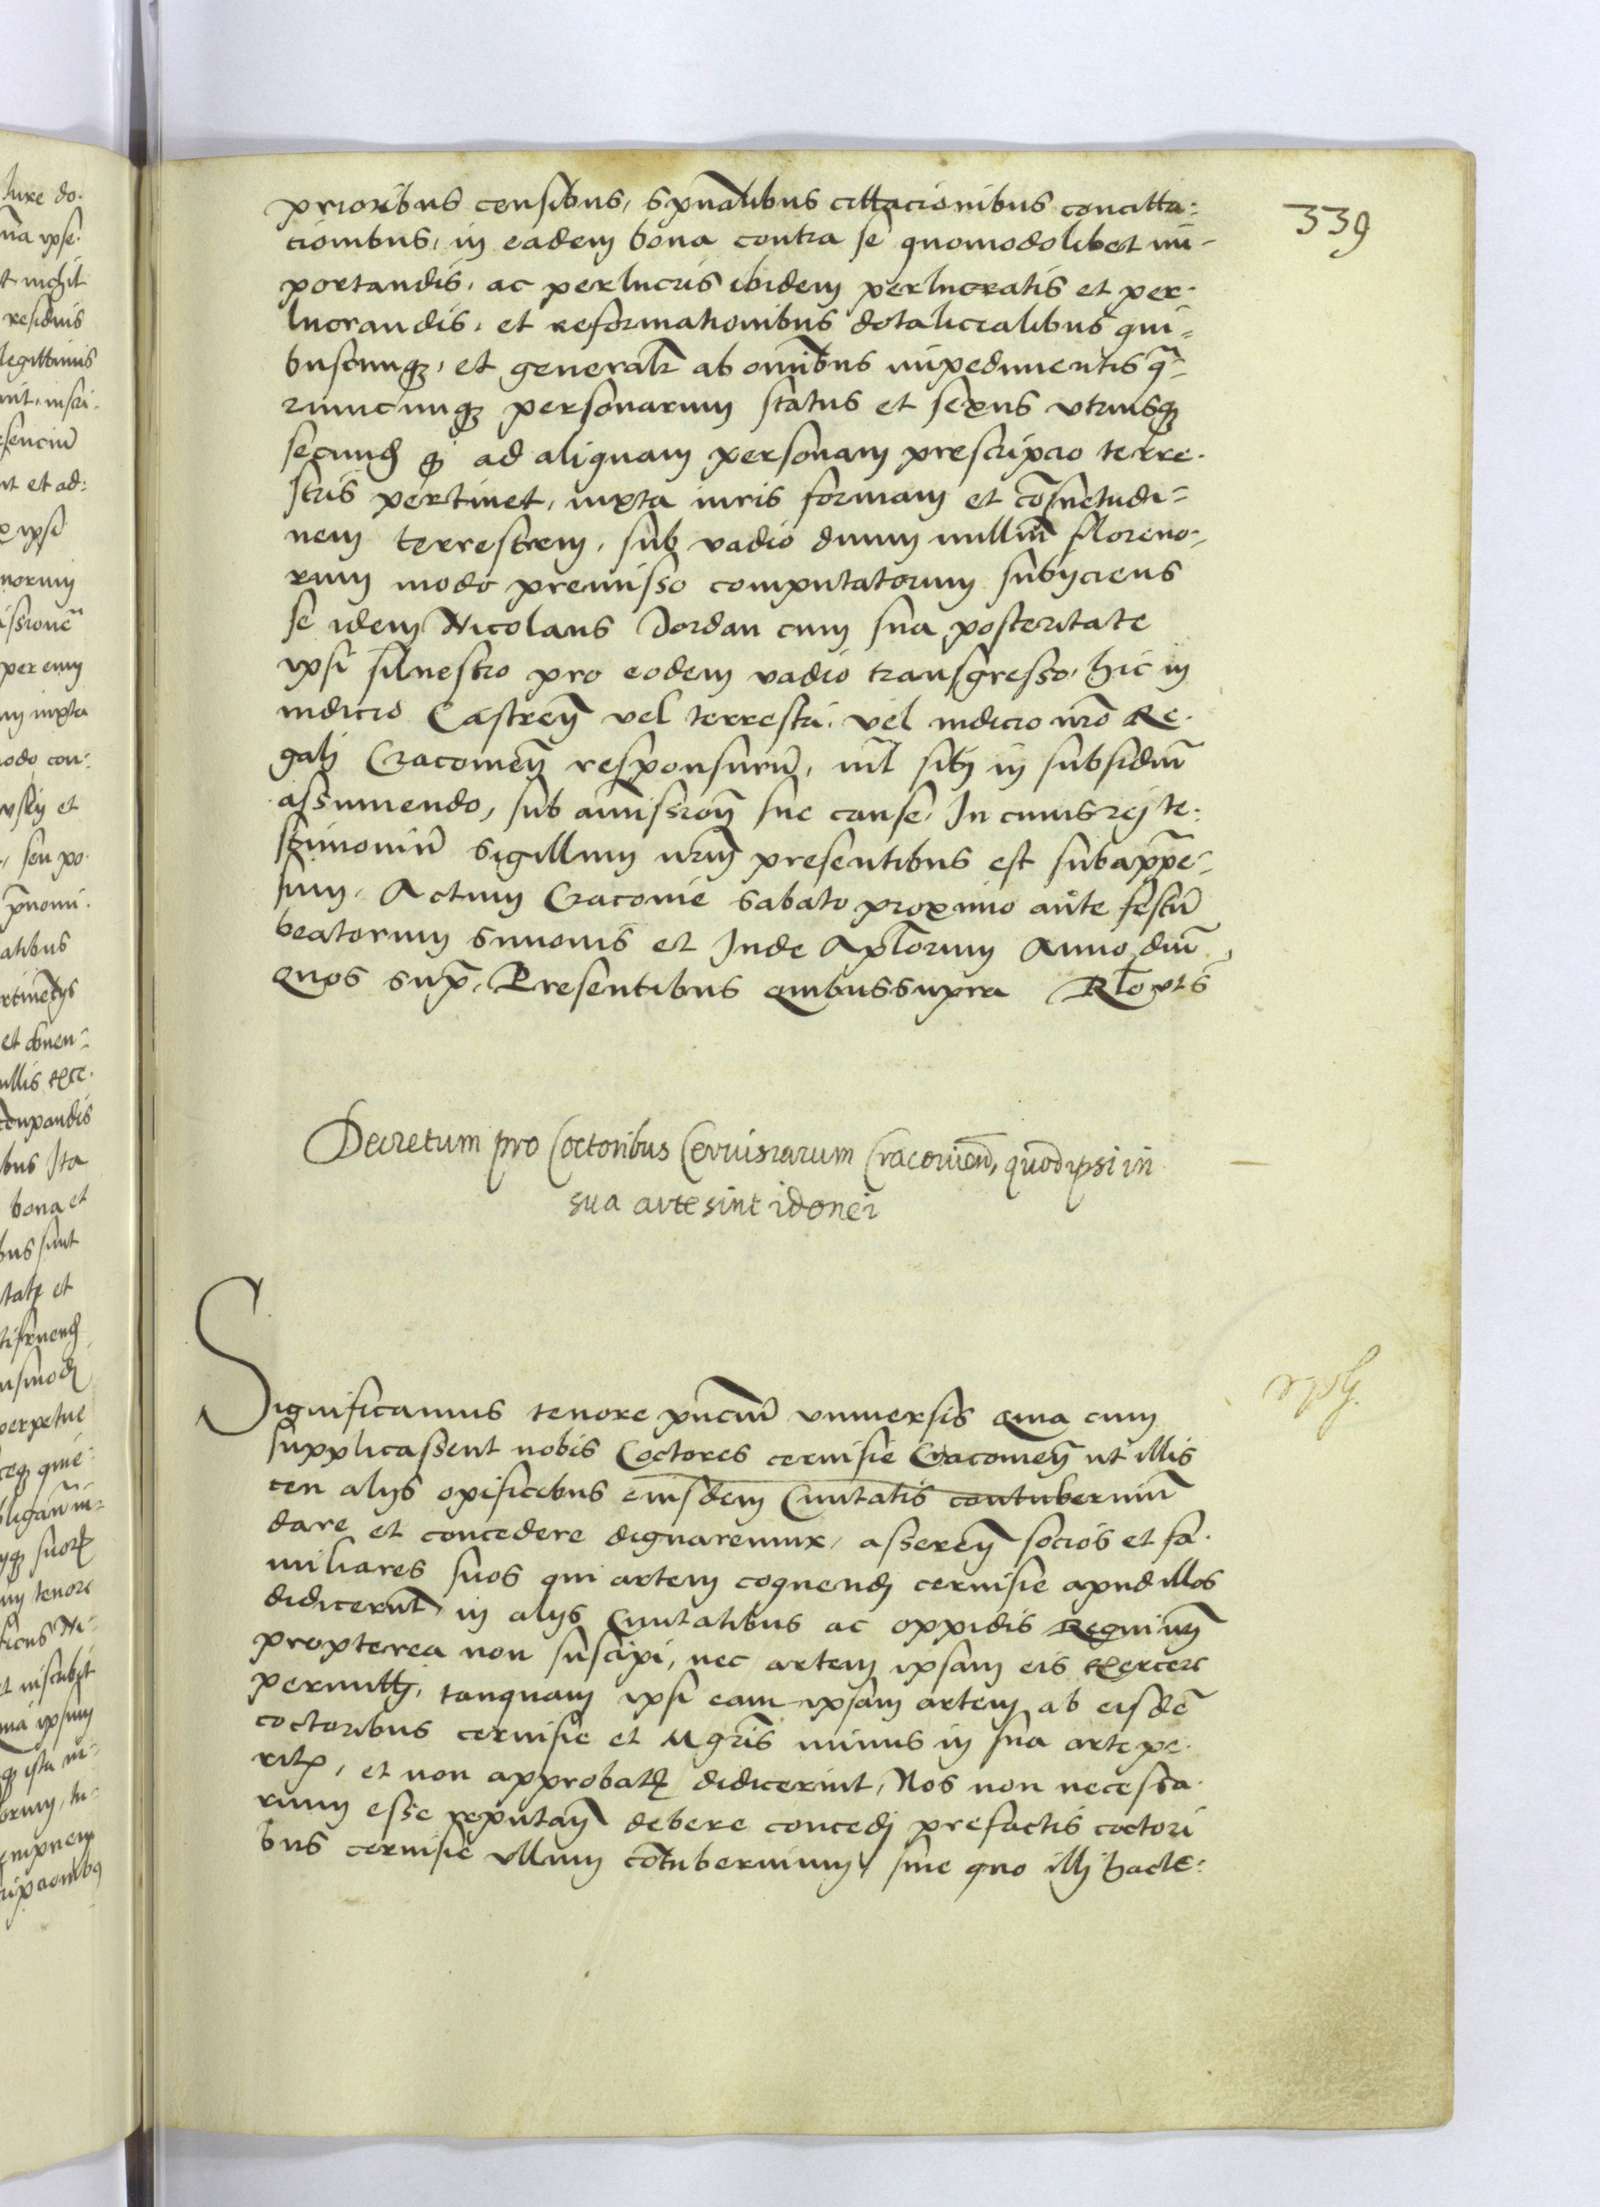 339
prioribus censibus, spũalibus cittacionibus concitta-
cionibus, in eadem bona contra se quomodolibet im-
portandis, ac perlucris ibidem perlucratis et per-
lucrandis, et reformationibus dotalicialibus qui-
buscunqꝫ, et generalr̃ ab omĩbus impedimentis q̃-
rumcunqꝫ personarum status et sexus vtriusqꝫ
secund qꝫ ad aliquam personam prescripcio terre-
stris pertinet, iuxta iuris formam et cõsuetudi-
nem terrestrem, sub vadio duum milliũ floreno-
rum modo premisso computatorum subijciens
se idem Nicolaus Jordan cum sua posteritate
ipsi siluestro pro eodem vadio transgresso, hic in
iudicio Castreñ vel terrestri, vel iudicio nr̃o Re-
galj Cracouieñ responsurũ, nil sibj in subsidiũ
assumendo, sub amissioñ sue cause, In cuius rej te-
stimoniũ sigillum nr̃um presentibus est subappẽ-
sum, Actum Cracouie sabato proximo ante festũ
beatorum simonis et Jude Ap̃lorum Anno dm̃
quos sup̃, Presentibus quibussupra Rl̃o vts
Decretum pro Coctoribus Cervisiarum Cracovien̄, quod ipsi in
sua arte sint idonei
Significamus tenore pñciũ vniuersis Quia cum
supplicassent nobis Coctores ceruisie Cracouieñ ut illis
ceu alijs opificibus eiusdem Ciuitatis contuberniũ
dare et concedere dignaremur, assereñ socios et fa-
miliares suos qui artem coquendj ceruisie apud illos
didicerũt, in alijs Ciuitatibus ac oppidis Regni nr̃i
propterea non suscipi, nec artem ipsam eis exercere
permittj, tanquam ipsi eam ipsam artem ab eisdẽ
coctoribus ceruisie et Mgr̃is minus in sua arte pe-
ritꝫ, et non approbatꝫ didicerint, Nos non necessa-
rium esse reputañ debere concedj prefactis coctori
bus ceruisie vllum cõtubernium, sine quo illj hacte-